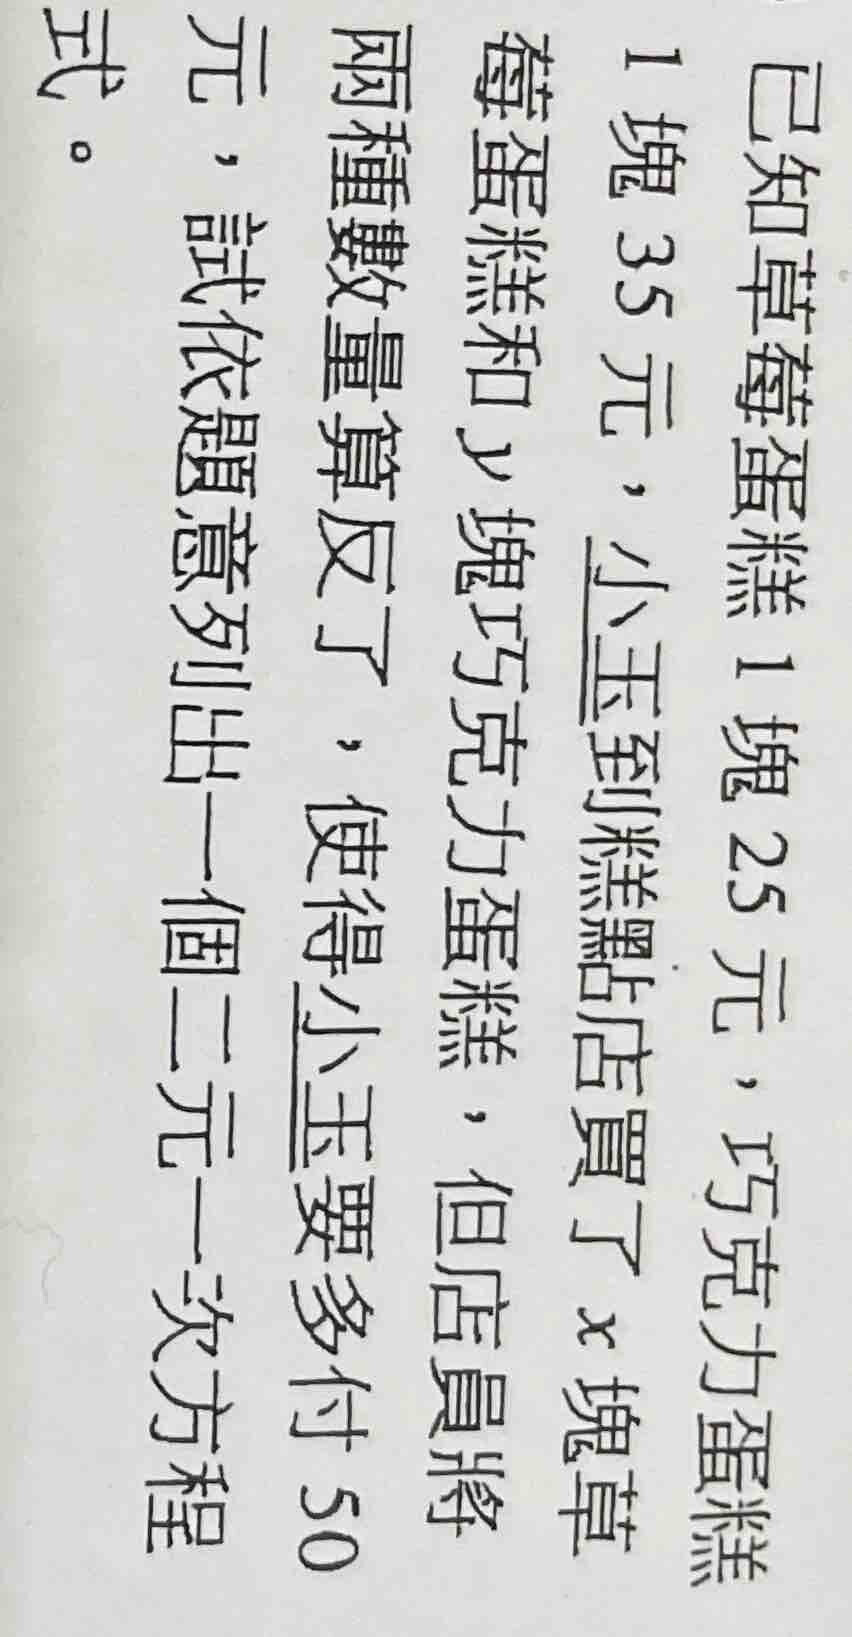 已知草莓蛋糕 1 塊 25 元，巧克力蛋糕
1 塊 35 元，小玉到糕點店買了 x 塊草
莓蛋糕和 y 塊巧克力蛋糕，但店員將
兩種數量算反了，使得小玉要多付 50
元，試依題意列出一個二元一次方程
式。